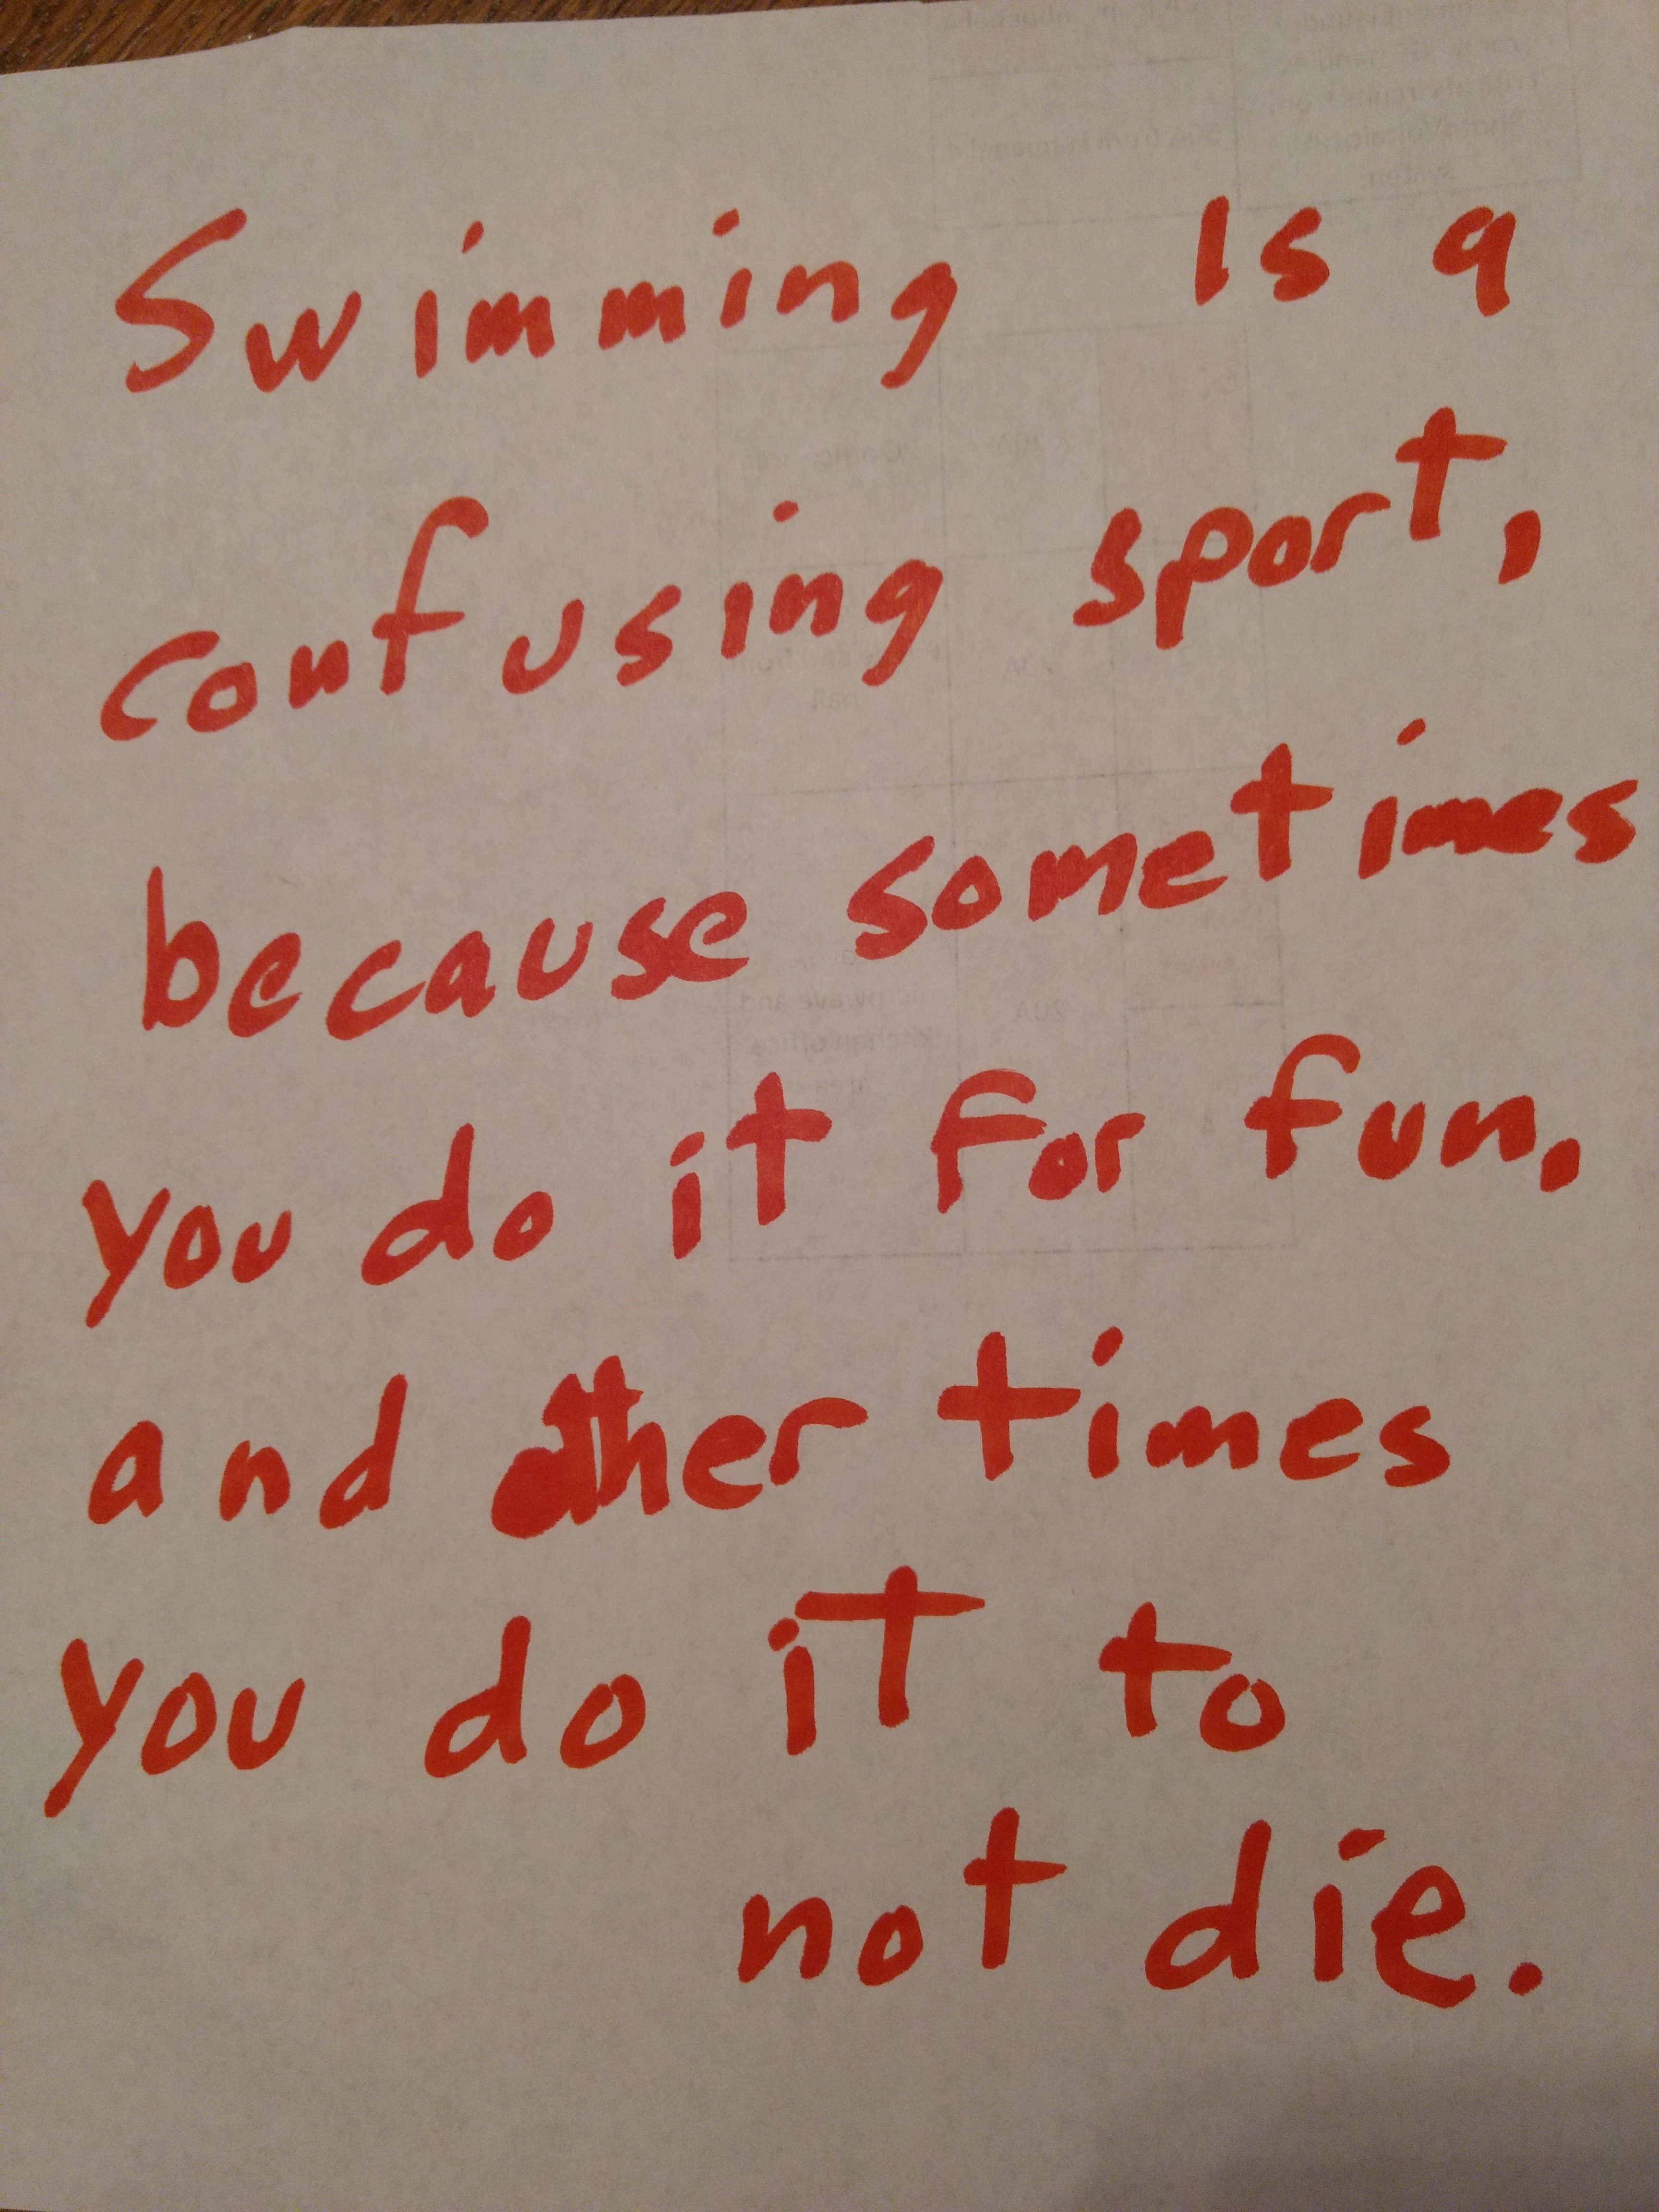 Swimming is a
confusing sport,
because sometimes
you do it for fun,
and other times
you do it to
not die.